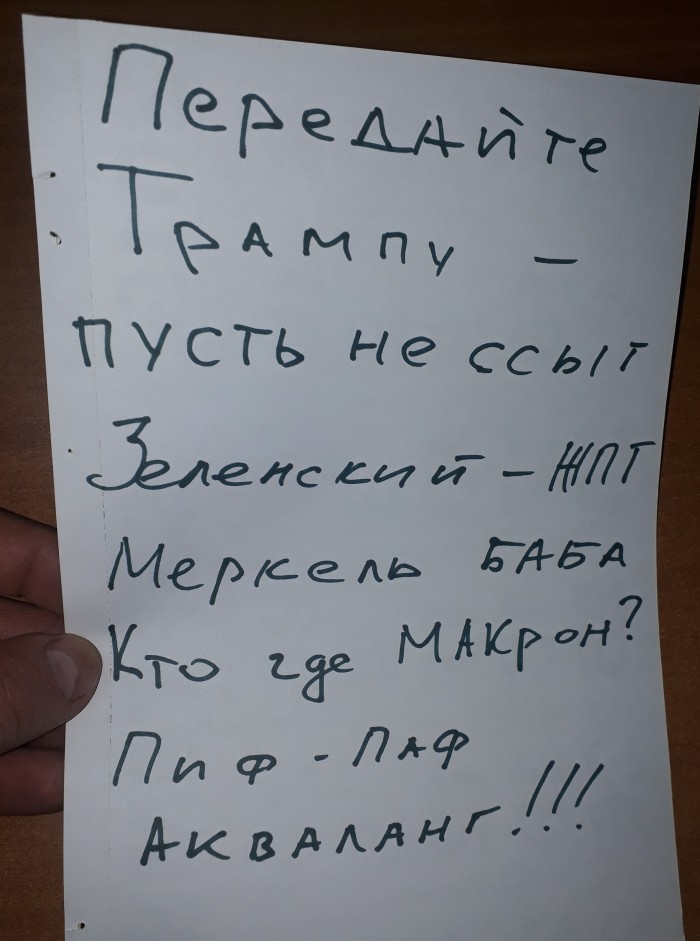 Передайте
Трампу –
пусть не ссыт
Зеленский – ЖПТ
Меркель БАБА
Кто где МАКрон?
Пиф - ПАФ
АКВАЛАНГ!!!